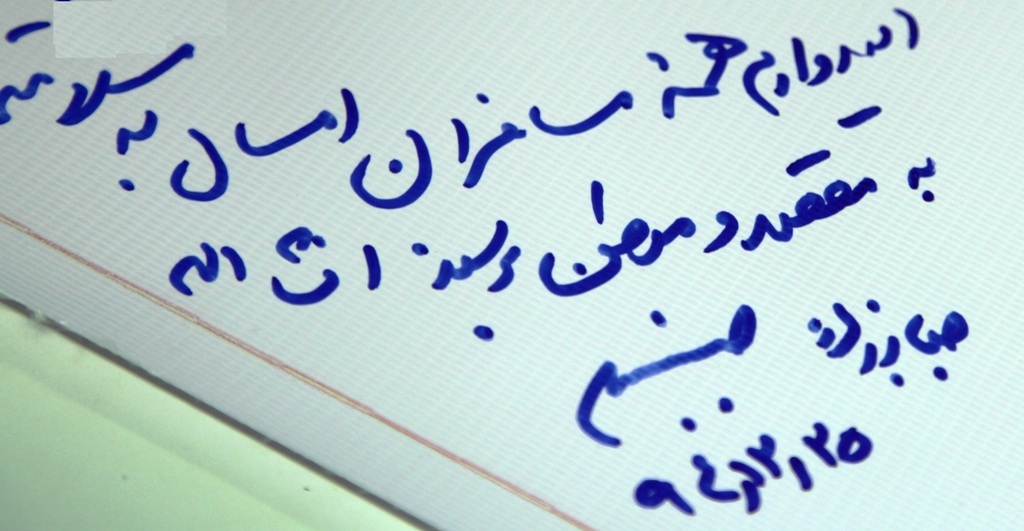 امیدوارم همهٔ مسافران امسال به سلامتی
به مقصد و موطن برسند انشاالله
جبارزاده